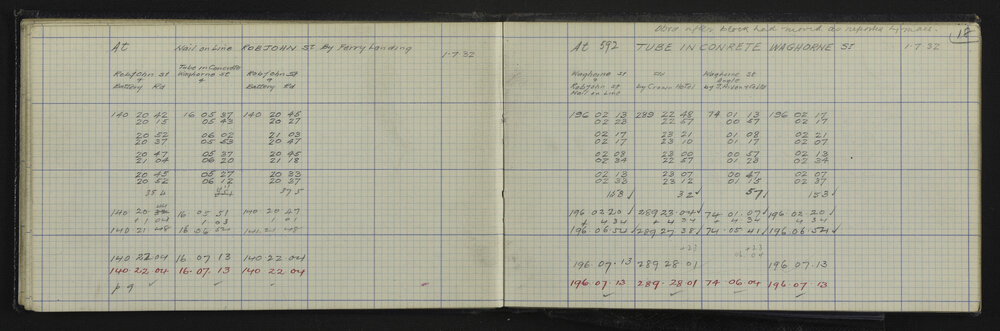 At Nail on Line ROBJOHN St By Ferry Landing 1-7-32
Tube in Concrete
Robjohn St Waghorne St Robjohn St
& & &
Battery Rd Battery Rd
140 20 42 16 05 37 140 20 45
20 15 05 43 20 27
20 52 06 02 21 03
20 37 05 53 20 47
20 47 05 37 20 45
21 04 06 20 21 18
20 45 05 27 20 33
20 52 06 12 20 37
354 375
140 20 16 05 51 140 20 47
1 04 1 03 1 01
140 21 48 16 06 54 21 48
140 22 04 16 07 13 140 22 04
140.22.04 16.07.13 140 22 04
p 9
Obsd after block had moved as reported 18
At 592 TUBE IN CONRETE WAGHORNE St 1-7-32
Waghorne St Waghorne St
& Angle
Robjohn St by Crown Hotel
Nail on Line
196 02 13 289 22 48 74 01 13 196 02 17
02 28 22 57 00 57 02 08
02 17 23 21 01 08 02 21
02 17 23 10 01 17 02 07
02 09 23 00 00 57 02 13
02 34 22 57 01 28 02 34
02 13 23 07 00 47 02 07
02 33 23 12 01 15 02 37
32 57 153
196 02 20 289 23 04 74 01.07 196.02.20
4 34 4 34 + 4 34 4 34
196.06.54 289 27 38 74.05 41 196.06.54
+23 +23
06.04
196.07.13 289 28 01 196 07 13
196.07.13 289.28.01 74 06 04 196.07.13